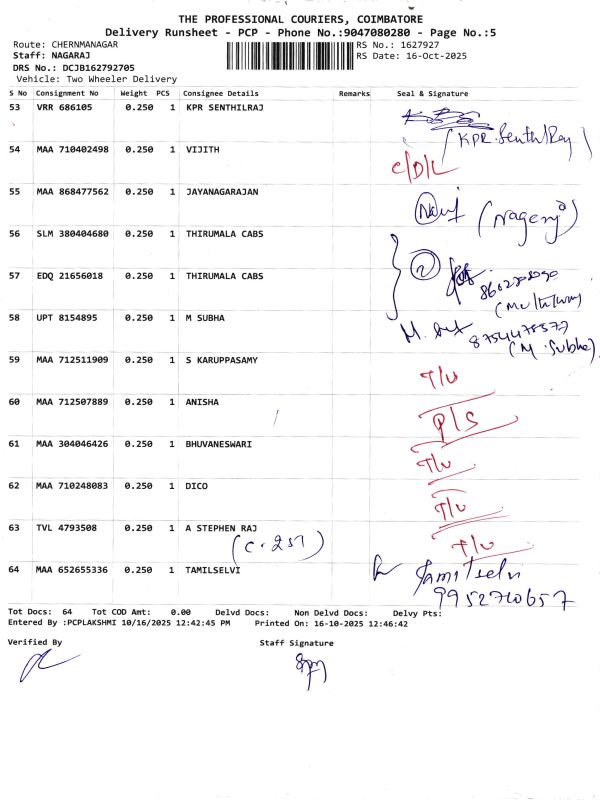 THE PROFESSIONAL COURIERS, COIMBATORE
Delivery Runsheet - PCP - Phone No.:9047080280 - Page No.:5
Route: CHERNMANAGAR
RS No.: 1627927
Staff: NAGARAJ
RS Date: 16-Oct-2025
DRS No.: DCJB162792705
Vehicle: Two Wheeler Delivery
S No Consignment No Weight PCS Consignee Details Remarks Seal & Signature
53 VRR 686105 0.250 1 KPR SENTHILRAJ
(KPR.Senthilraj)
54 MAA 710402498 0.250 1 VIJITH C/D/L
55 MAA 868477562 0.250 1 JAYANAGARAJAN
(Nageraj)
56 SLM 380404680 0.250 1 THIRUMALA CABS
57 EDQ 21656018 0.250 1 THIRUMALA CABS
58 UPT 8154895 0.250 1 M SUBHA
(M. Subha)
59 MAA 712511909 0.250 1 S KARUPPASAMY T/U
60 MAA 712507889 0.250 1 ANISHA P/S
61 MAA 304046426 0.250 1 BHUVANESWARI T/U
62 MAA 710248083 0.250 1 DICO T/U
63 TVL 4793508 0.250 1 A STEPHEN RAJ T/U
(C.257)
64 MAA 652655336 0.250 1 TAMILSELVI Tamilselvi
9952710657
Tot Docs: 64 Tot COD Amt: 0.00 Delvd Docs: Non Delvd Docs: Delvy Pts:
Entered By :PCPLAKSHMI 10/16/2025 12:42:45 PM Printed On: 16-10-2025 12:46:42
Verified By Staff Signature